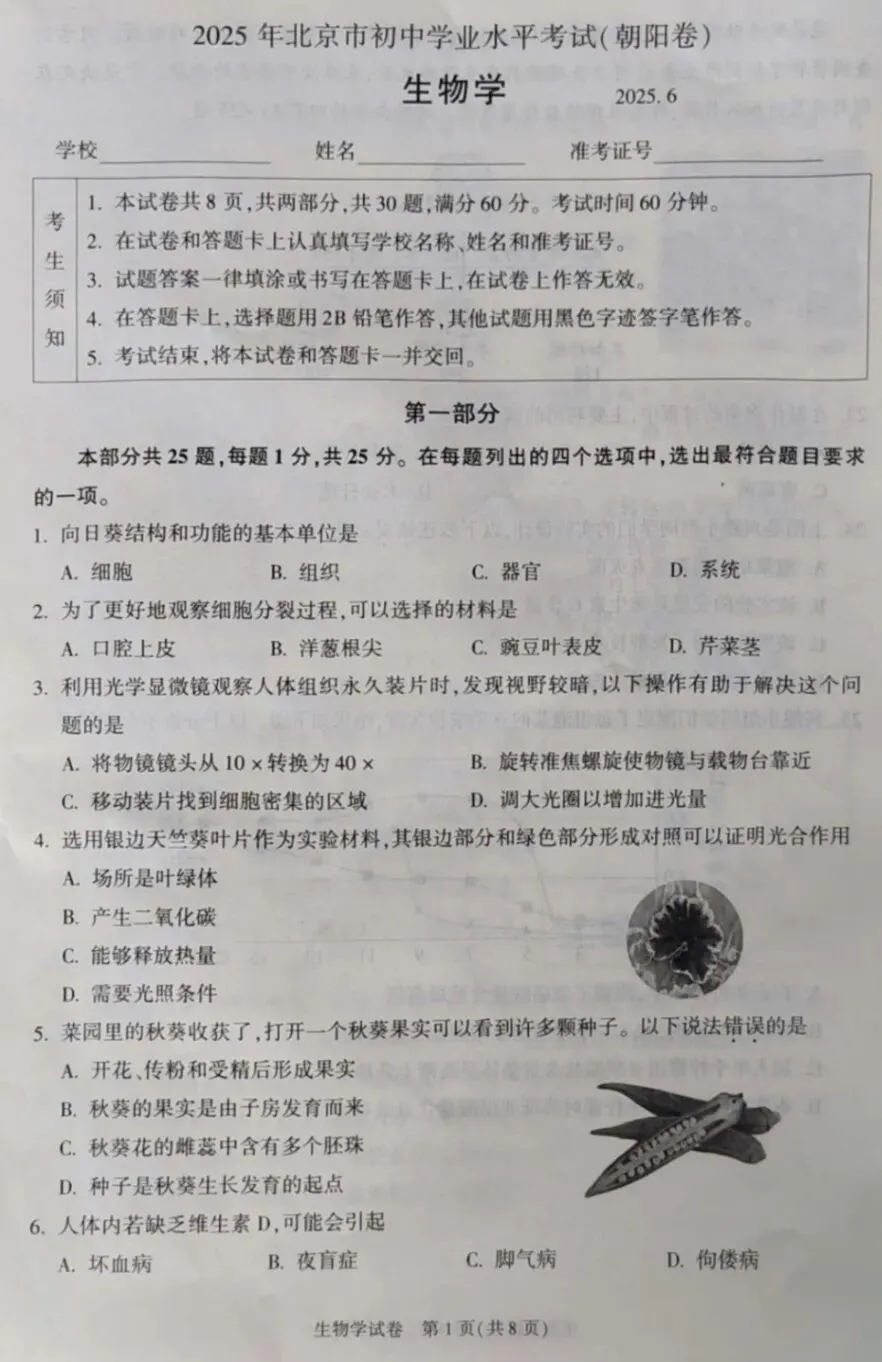 2025 年北京市初中学业水平考试(朝阳卷)
生物学 2025.6
学校 姓名 准考证号
考生须知
1. 本试卷共8页,共两部分,共30题,满分60分。考试时间60分钟。
2. 在试卷和答题卡上认真填写学校名称、姓名和准考证号。
3. 试题答案一律填涂或书写在答题卡上,在试卷上作答无效。
4. 在答题卡上,选择题用2B铅笔作答,其他试题用黑色字迹签字笔作答。
5. 考试结束,将本试卷和答题卡一并交回。
第一部分
本部分共25题,每题1分,共25分。在每题列出的四个选项中,选出最符合题目要求
的一项。
1. 向日葵结构和功能的基本单位是
A. 细胞 B. 组织 C. 器官 D. 系统
2. 为了更好地观察细胞分裂过程,可以选择的材料是
A. 口腔上皮 B. 洋葱根尖 C. 豌豆叶表皮 D. 芹菜茎
3. 利用光学显微镜观察人体组织永久装片时,发现视野较暗,以下操作有助于解决这个问
题的是
A. 将物镜镜头从10×转换为40× B. 旋转准焦螺旋使物镜与载物台靠近
C. 移动装片找到细胞密集的区域 D. 调大光圈以增加进光量
4. 选用银边天竺葵叶片作为实验材料,其银边部分和绿色部分形成对照可以证明光合作用
A. 场所是叶绿体
B. 产生二氧化碳
C. 能够释放热量
D. 需要光照条件
5. 菜园里的秋葵收获了,打开一个秋葵果实可以看到许多颗种子。以下说法错误的是
A. 开花、传粉和受精后形成果实
B. 秋葵的果实是由子房发育而来
C. 秋葵花的雌蕊中含有多个胚珠
D. 种子是秋葵生长发育的起点
6. 人体内若缺乏维生素D,可能会引起
A. 坏血病 B. 夜盲症 C. 脚气病 D. 佝偻病
生物学试卷 第1页(共8页)